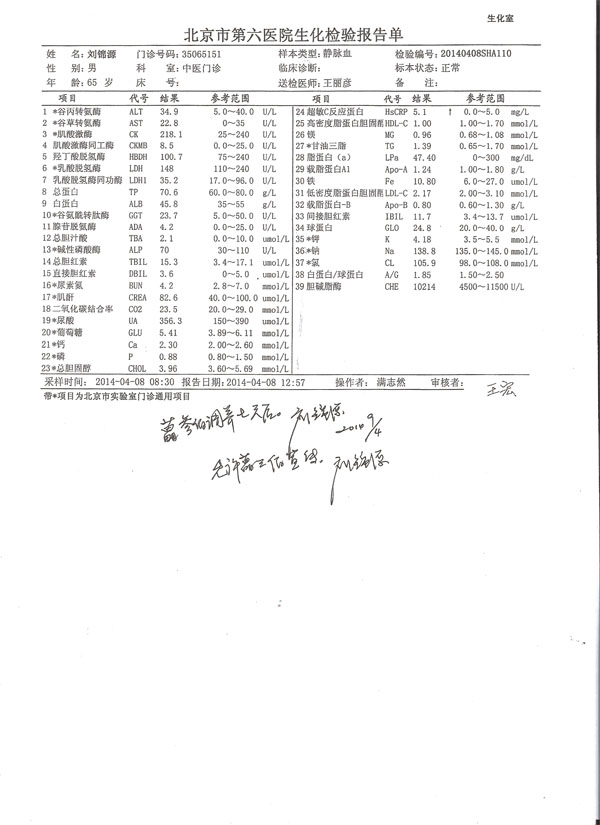 生化室
北京市第六医院生化检验报告单
姓 名:刘锦源 门诊号码:35065151 样本类型:静脉血 检验编号:20140408SHA110
性 别:男 科 室:中医门诊 临床诊断: 标本状态:正常
年 龄:65 岁 床 号: 送检医师:王丽彦 备 注:
项目 代号 结果 参考范围 项目 代号 结果 参考范围
1 *谷丙转氨酶 ALT 34.9 5.0~40.0 U/L 24 超敏C反应蛋白 HsCRP 5.1 ↑ 0.0~5.0 mg/L
2 *谷草转氨酶 AST 22.8 0~35 U/L 25 高密度脂蛋白胆固醇HDL-C 1.00 1.00~1.70 mmol/L
3 *肌酸激酶 CK 218.1 25~240 U/L 26 镁 MG 0.96 0.68~1.08 mmol/L
4 肌酸激酶同工酶 CKMB 8.5 0.0~25.0 U/L 27 *甘油三脂 TG 1.39 0.65~1.70 mmol/L
5 羟丁酸脱氢酶 HBDH 100.7 75~240 U/L 28 脂蛋白（a） LPa 47.40 0~300 mg/dL
6 *乳酸脱氢酶 LDH 148 110~240 U/L 29 载脂蛋白A1 Apo-A 1.24 1.00~1.80 g/L
7 乳酸脱氢酶同功酶 LDH1 35.2 17.0~96.0 U/L 30 铁 Fe 10.80 6.0~27.0 umol/L
8 总蛋白 TP 70.6 60.0~80.0 g/L 31 低密度脂蛋白胆固醇LDL-C 2.17 2.00~3.10 mmol/L
9 白蛋白 ALB 45.8 35~55 g/L 32 载脂蛋白-B Apo-B 0.80 0.60~1.30 g/L
10 *谷氨酰转肽酶 GGT 23.7 5.0~50.0 U/L 33 间接胆红素 IBIL 11.7 3.4~13.7 umol/L
11 腺苷脱氨酶 ADA 4.2 0.0~25.0 U/L 34 球蛋白 GLO 24.8 20.0~40.0 g/L
12 总胆汁酸 TBA 2.1 0.0~10.0 umol/L 35 *钾 K 4.18 3.5~5.5 mmol/L
13 *碱性磷酸酶 ALP 70 30~110 U/L 36 *钠 Na 138.8 135.0~145.0 mmol/L
14 总胆红素 TBIL 15.3 3.4~17.1 umol/L 37 *氯 CL 105.9 98.0~108.0 mmol/L
15 直接胆红素 DBIL 3.6 0~5.0 umol/L 38 白蛋白/球蛋白 A/G 1.85 1.50~2.50
16 *尿素氮 BUN 4.2 2.8~7.0 mmol/L 39 胆碱脂酶 CHE 10214 4500~11500 U/L
17 *肌酐 CREA 82.6 40.0~100.0 umol/L
18 二氧化碳结合率 CO2 23.5 20.0~29.0 mmol/L
19 *尿酸 UA 356.3 150~390 umol/L
20 *葡萄糖 GLU 5.41 3.89~6.11 mmol/L
21 *钙 Ca 2.30 2.00~2.60 mmol/L
22 *磷 P 0.88 0.80~1.50 mmol/L
23 *总胆固醇 CHOL 3.96 3.60~5.69 mmol/L
采样时间: 2014-04-08 08:30 报告日期:2014-04-08 12:57 操作者: 满志然 审核者: 王宏
带*项目为北京市实验室门诊通用项目
调养七天后。刘锦源 2014 9/4
允许 刘锦源